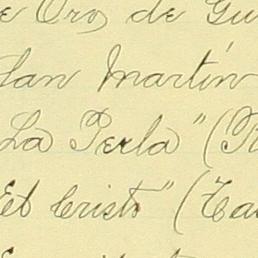 Oro, de
San Martín
La Perla" (
El Cristo" (